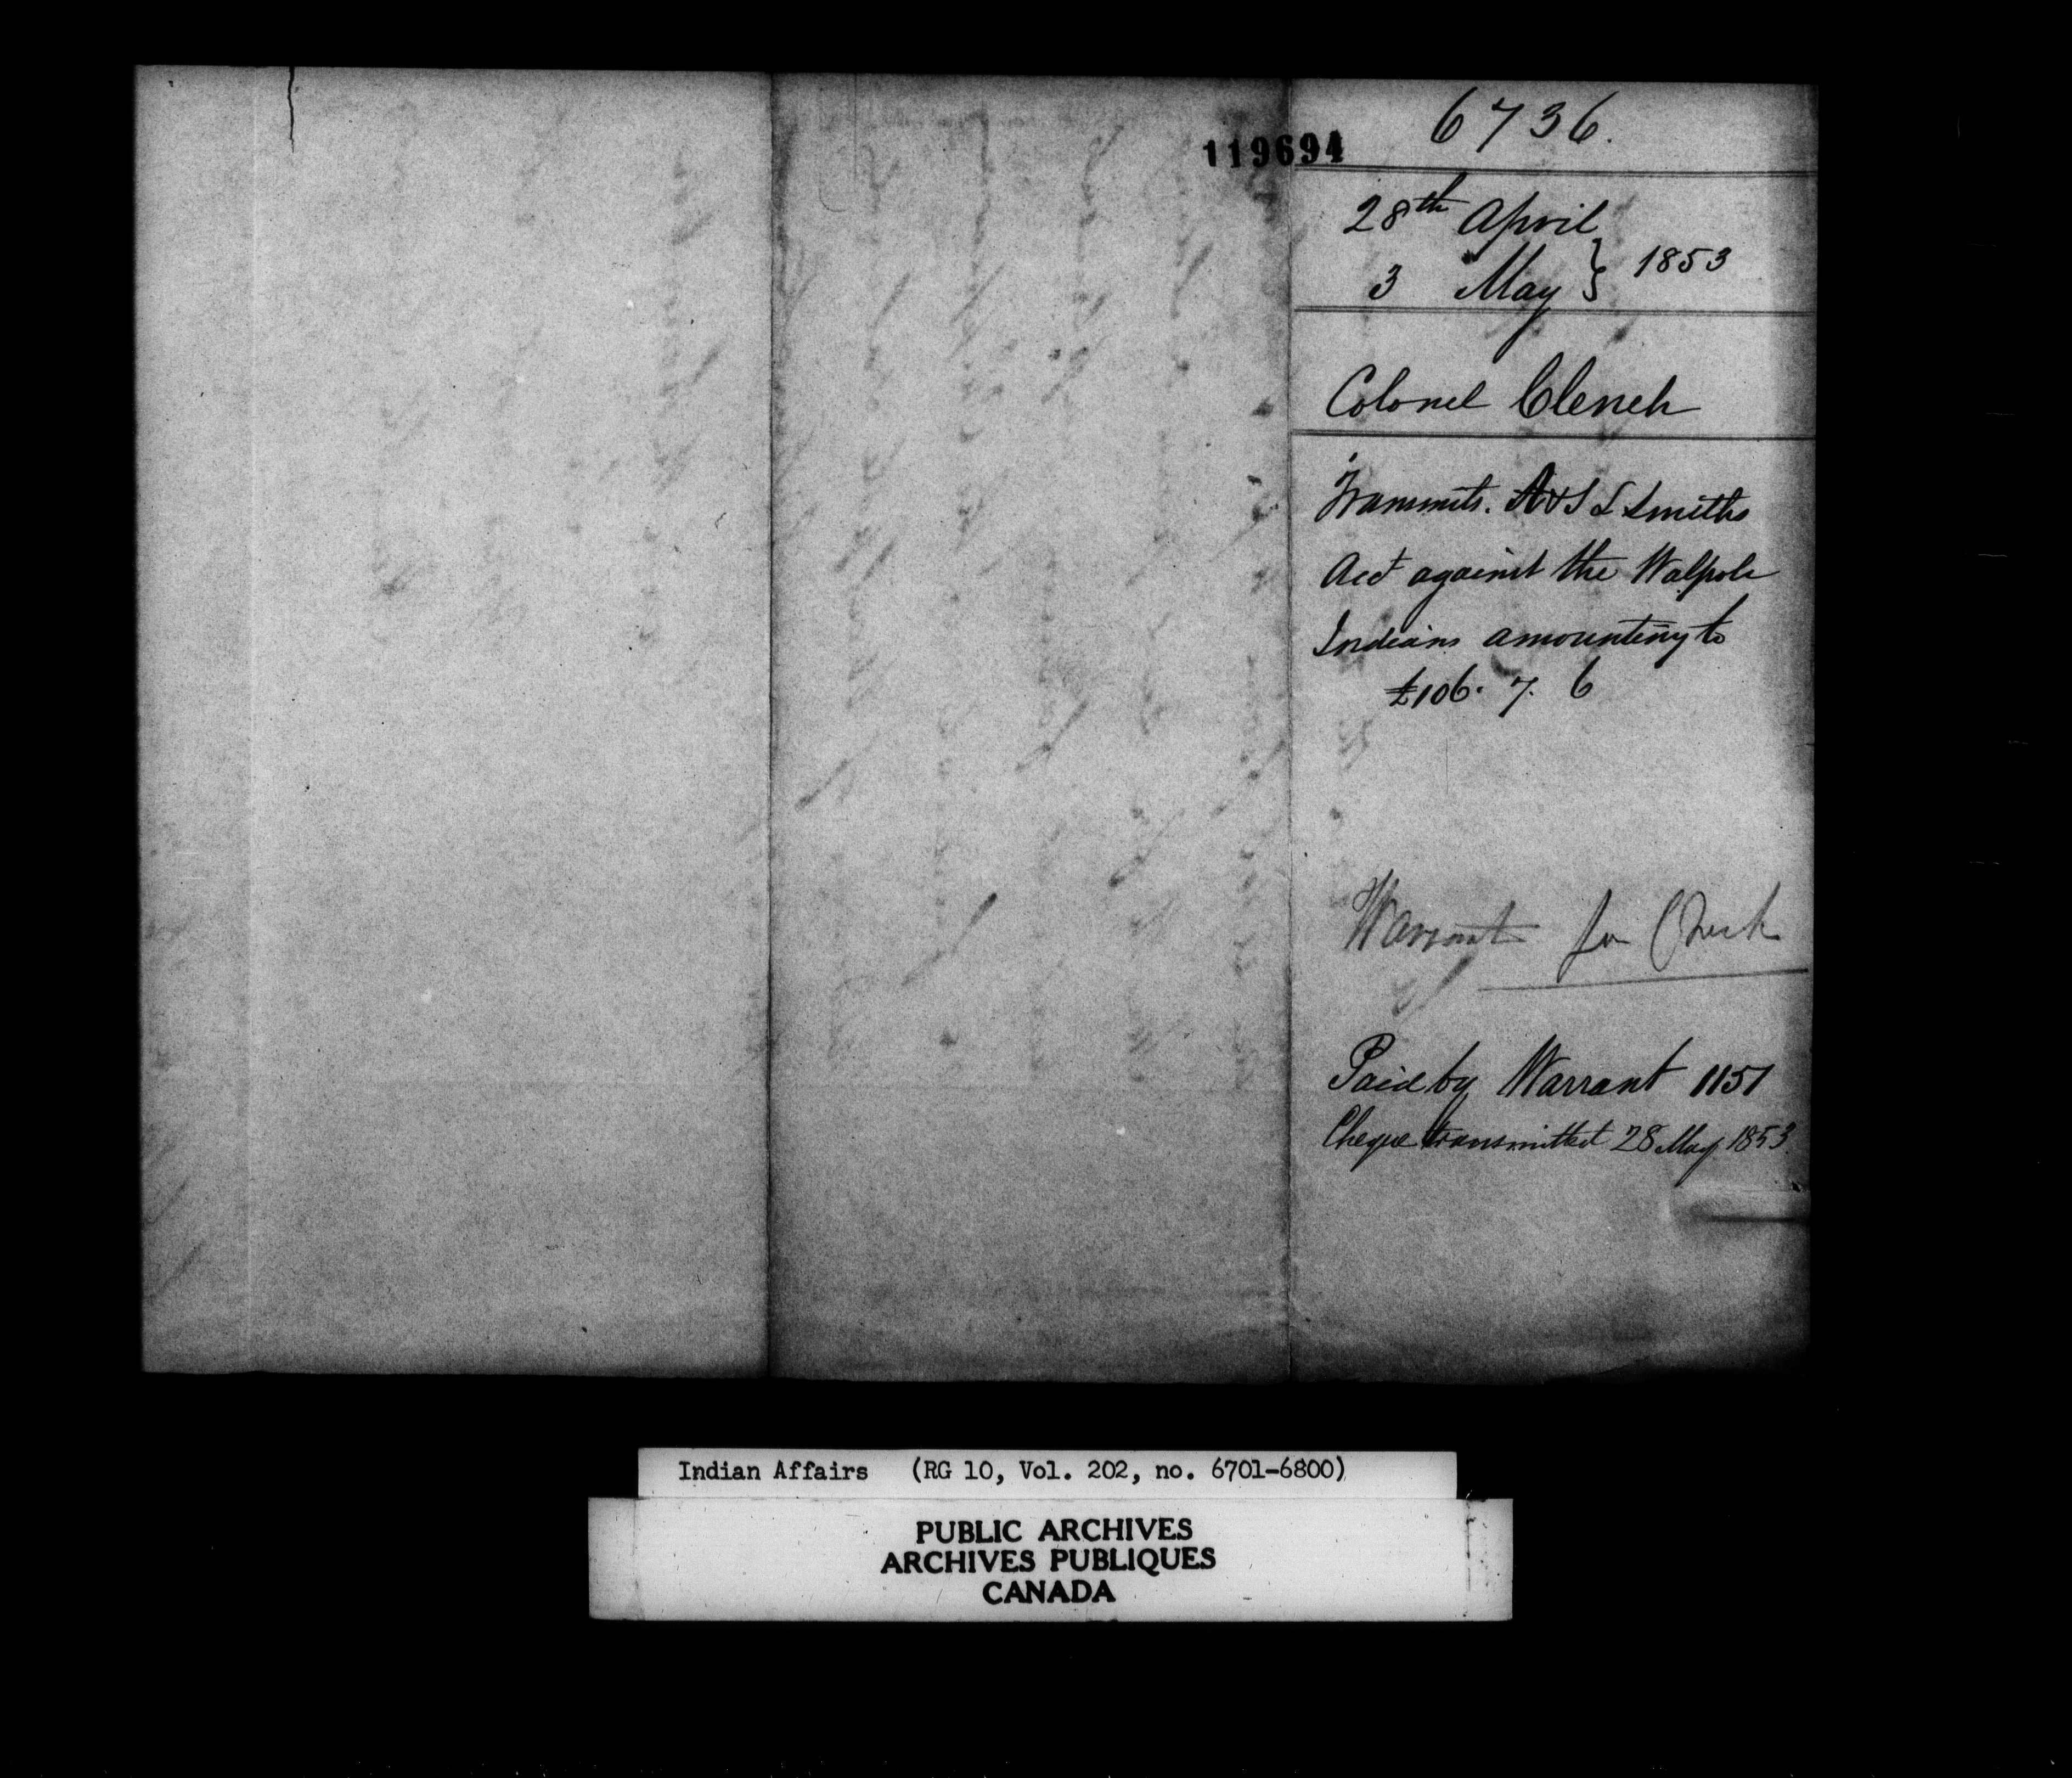 6736.
119694
28th April
3 May } 1853
Colonel Clench
Transmits. A & S L Smiths
Acct against the Walpole
Indians amounting to
£106. 7. 6
Warrant for Check
Paid by Warrant 1151
Cheque transmitted 28 May 1853.
Indian Affairs (RG 10, Vol. 202, no. 6701-6800)
PUBLIC ARCHIVES
ARCHIVES PUBLIQUES
CANADA